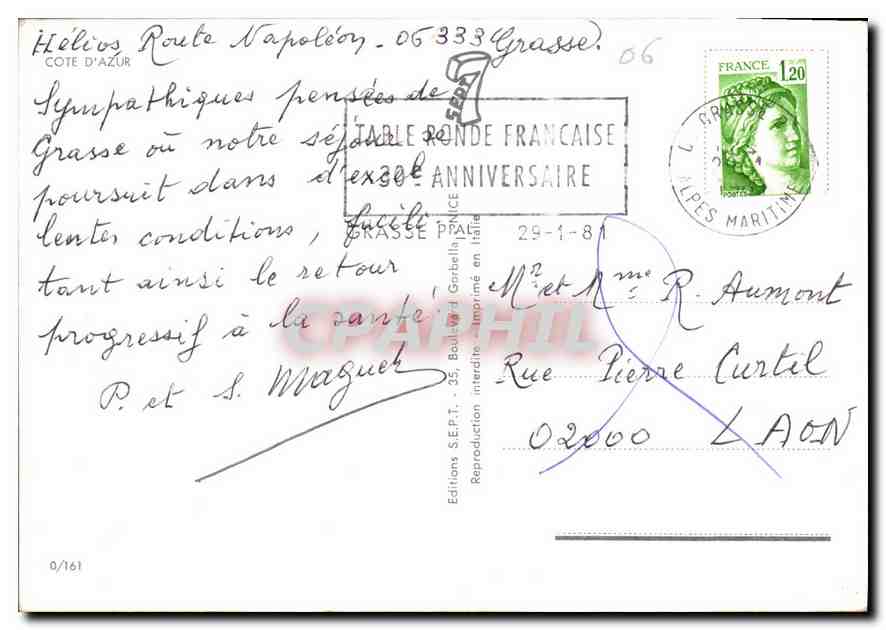 Hélios, Route Napoléon - 06333 Grasse.
06
COTE D'AZUR
Sympathiques pensées de
Grasse où notre séjour se
poursuit dans d'excel
lentes conditions, facili-
tant ainsi le retour
progressif à la santé!
P. et S. Maguet
SEPT 7
TABLE RONDE FRANCAISE
30e ANNIVERSAIRE
GRASSE PPAL 29-1-81
FRANCE 1,20
POSTES
GRASSE
ALPES MARITIMES
Mr et Mme R. Aumont
Rue Pierre Curtil
02000 LAON
Editions S.E.P.T. - 35, Boulevard Gorbella, NICE
Reproduction interdite - Imprimé en Italie
CPAPHIL
0/161